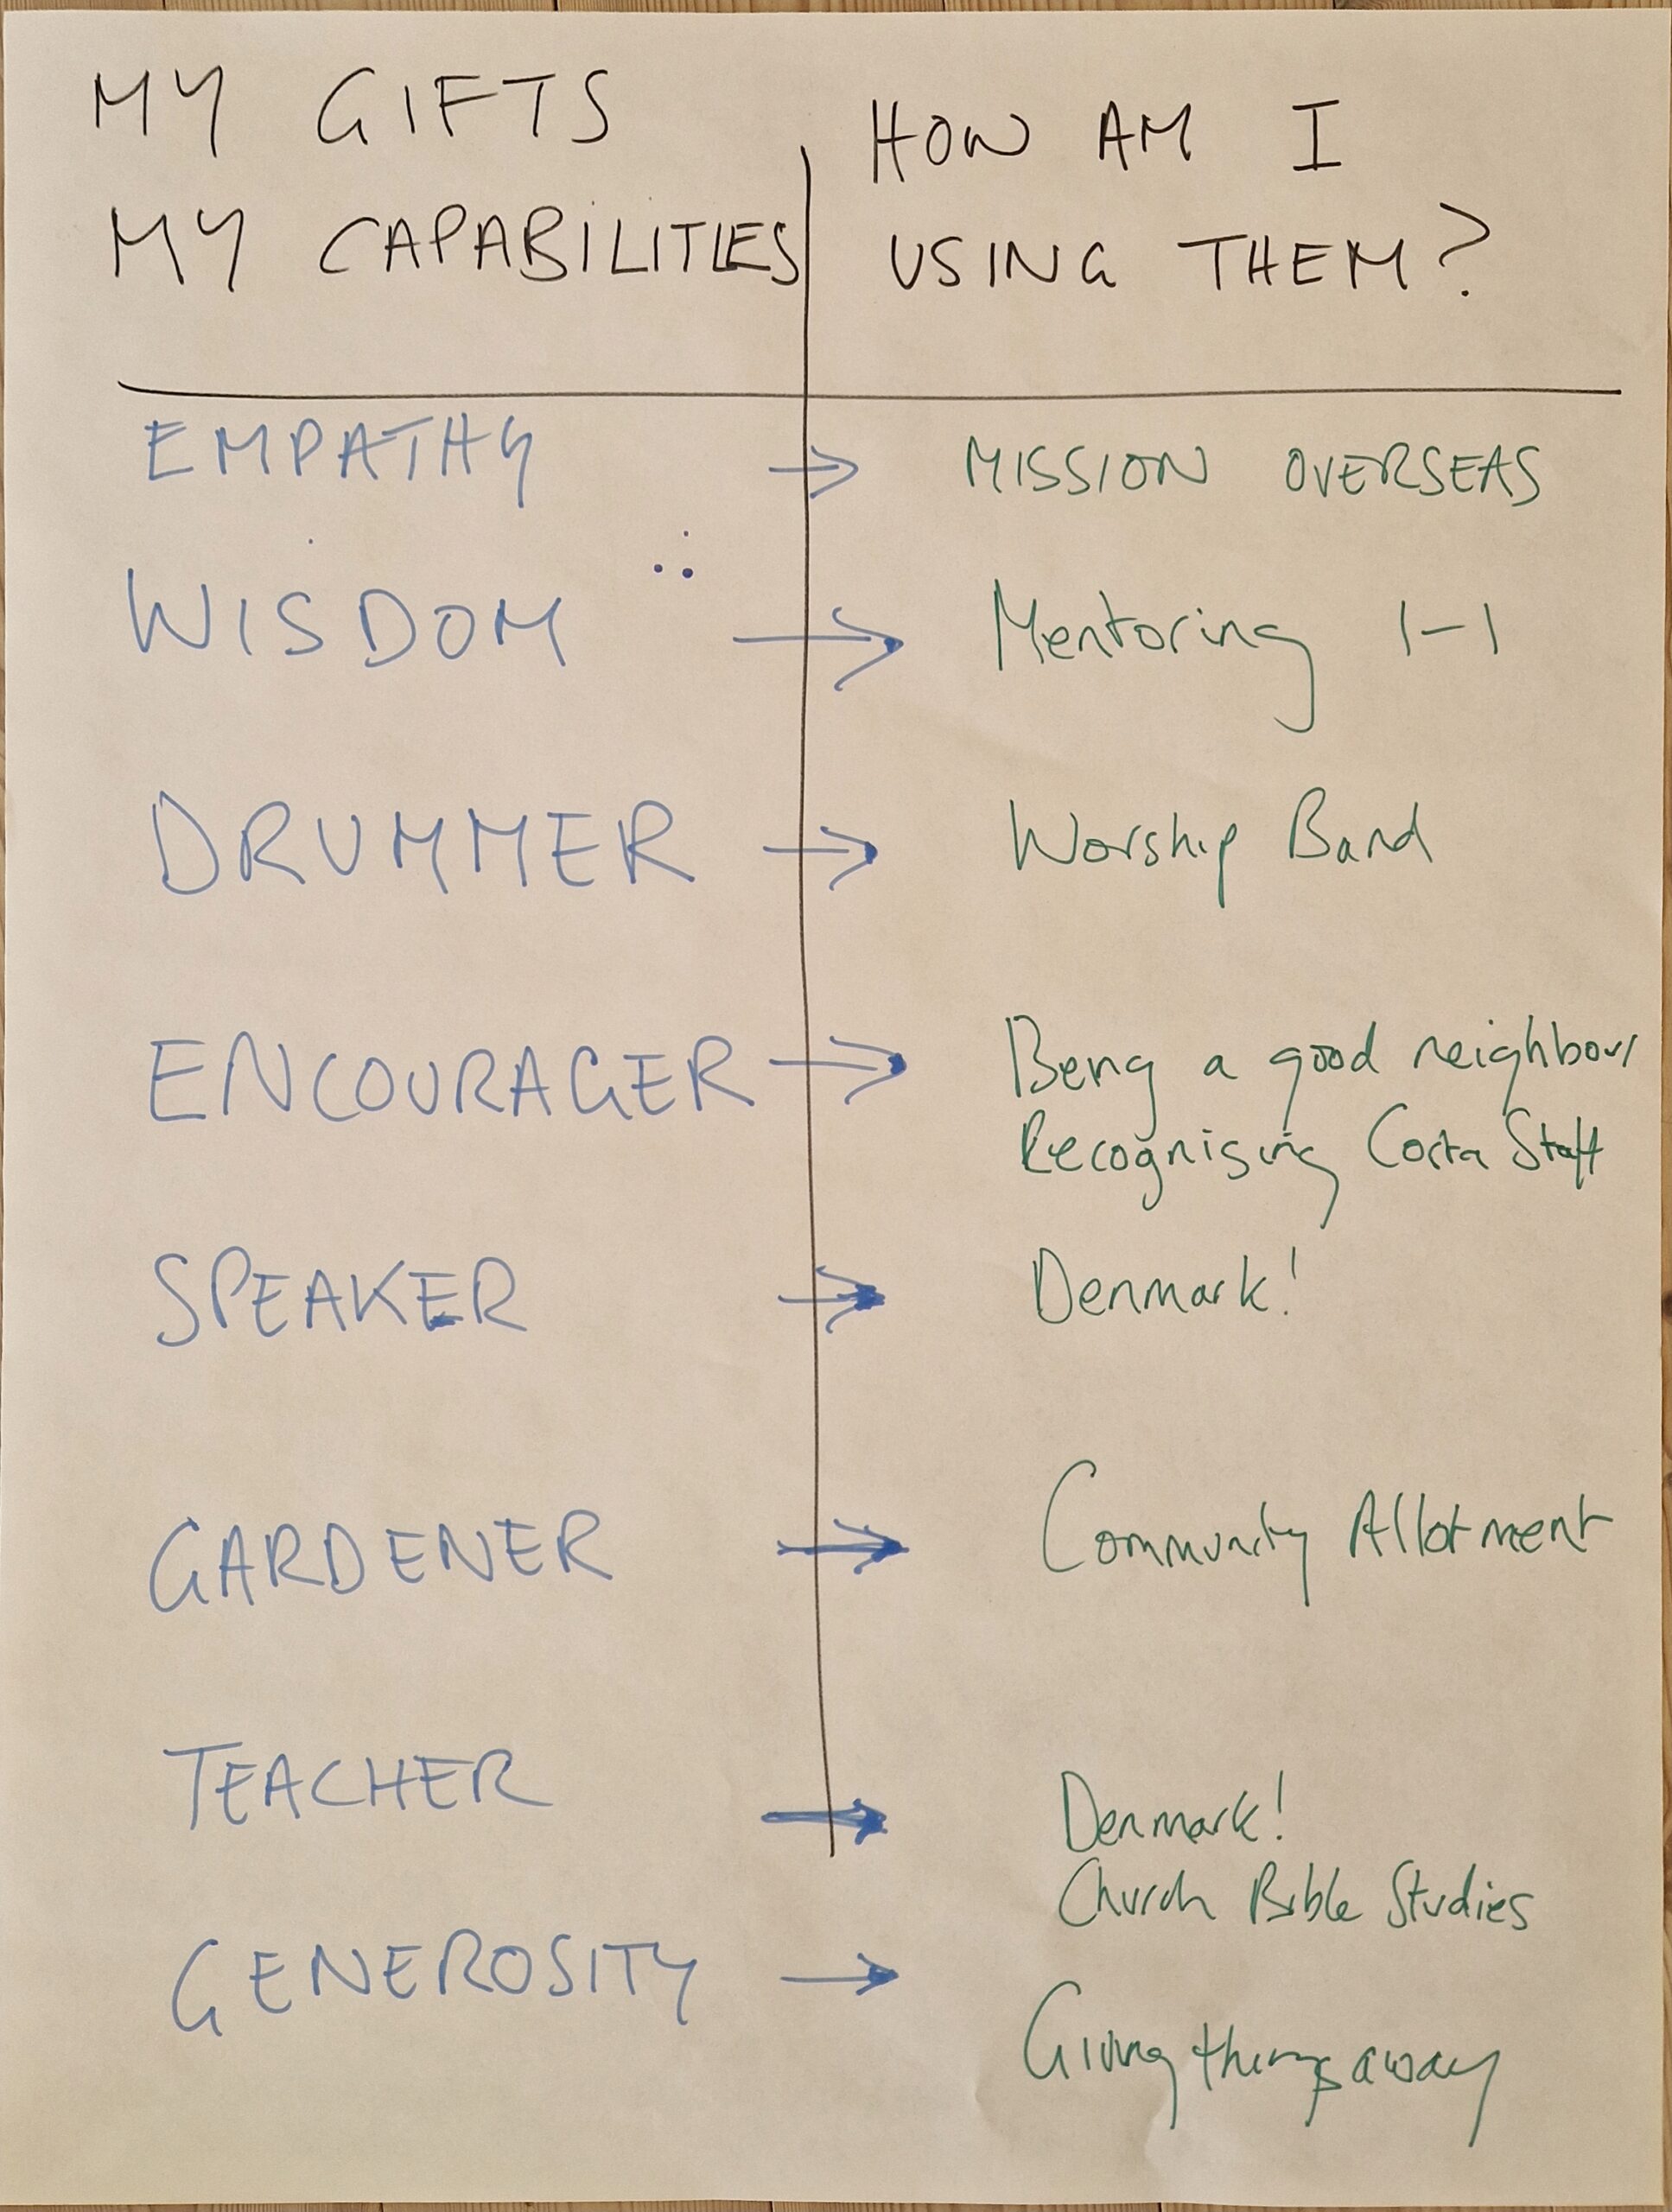 MY GIFTS
MY CAPABILITIES
HOW AM I
USING THEM?
EMPATHY → MISSION OVERSEAS
WISDOM → Mentoring 1-1
DRUMMER → Worship Band
ENCOURAGER → Being a good neighbour
Recognising Costa Staff
SPEAKER → Denmark!
GARDENER → Community Allotment
TEACHER → Denmark!
Church Bible Studies
GENEROSITY → Giving things away